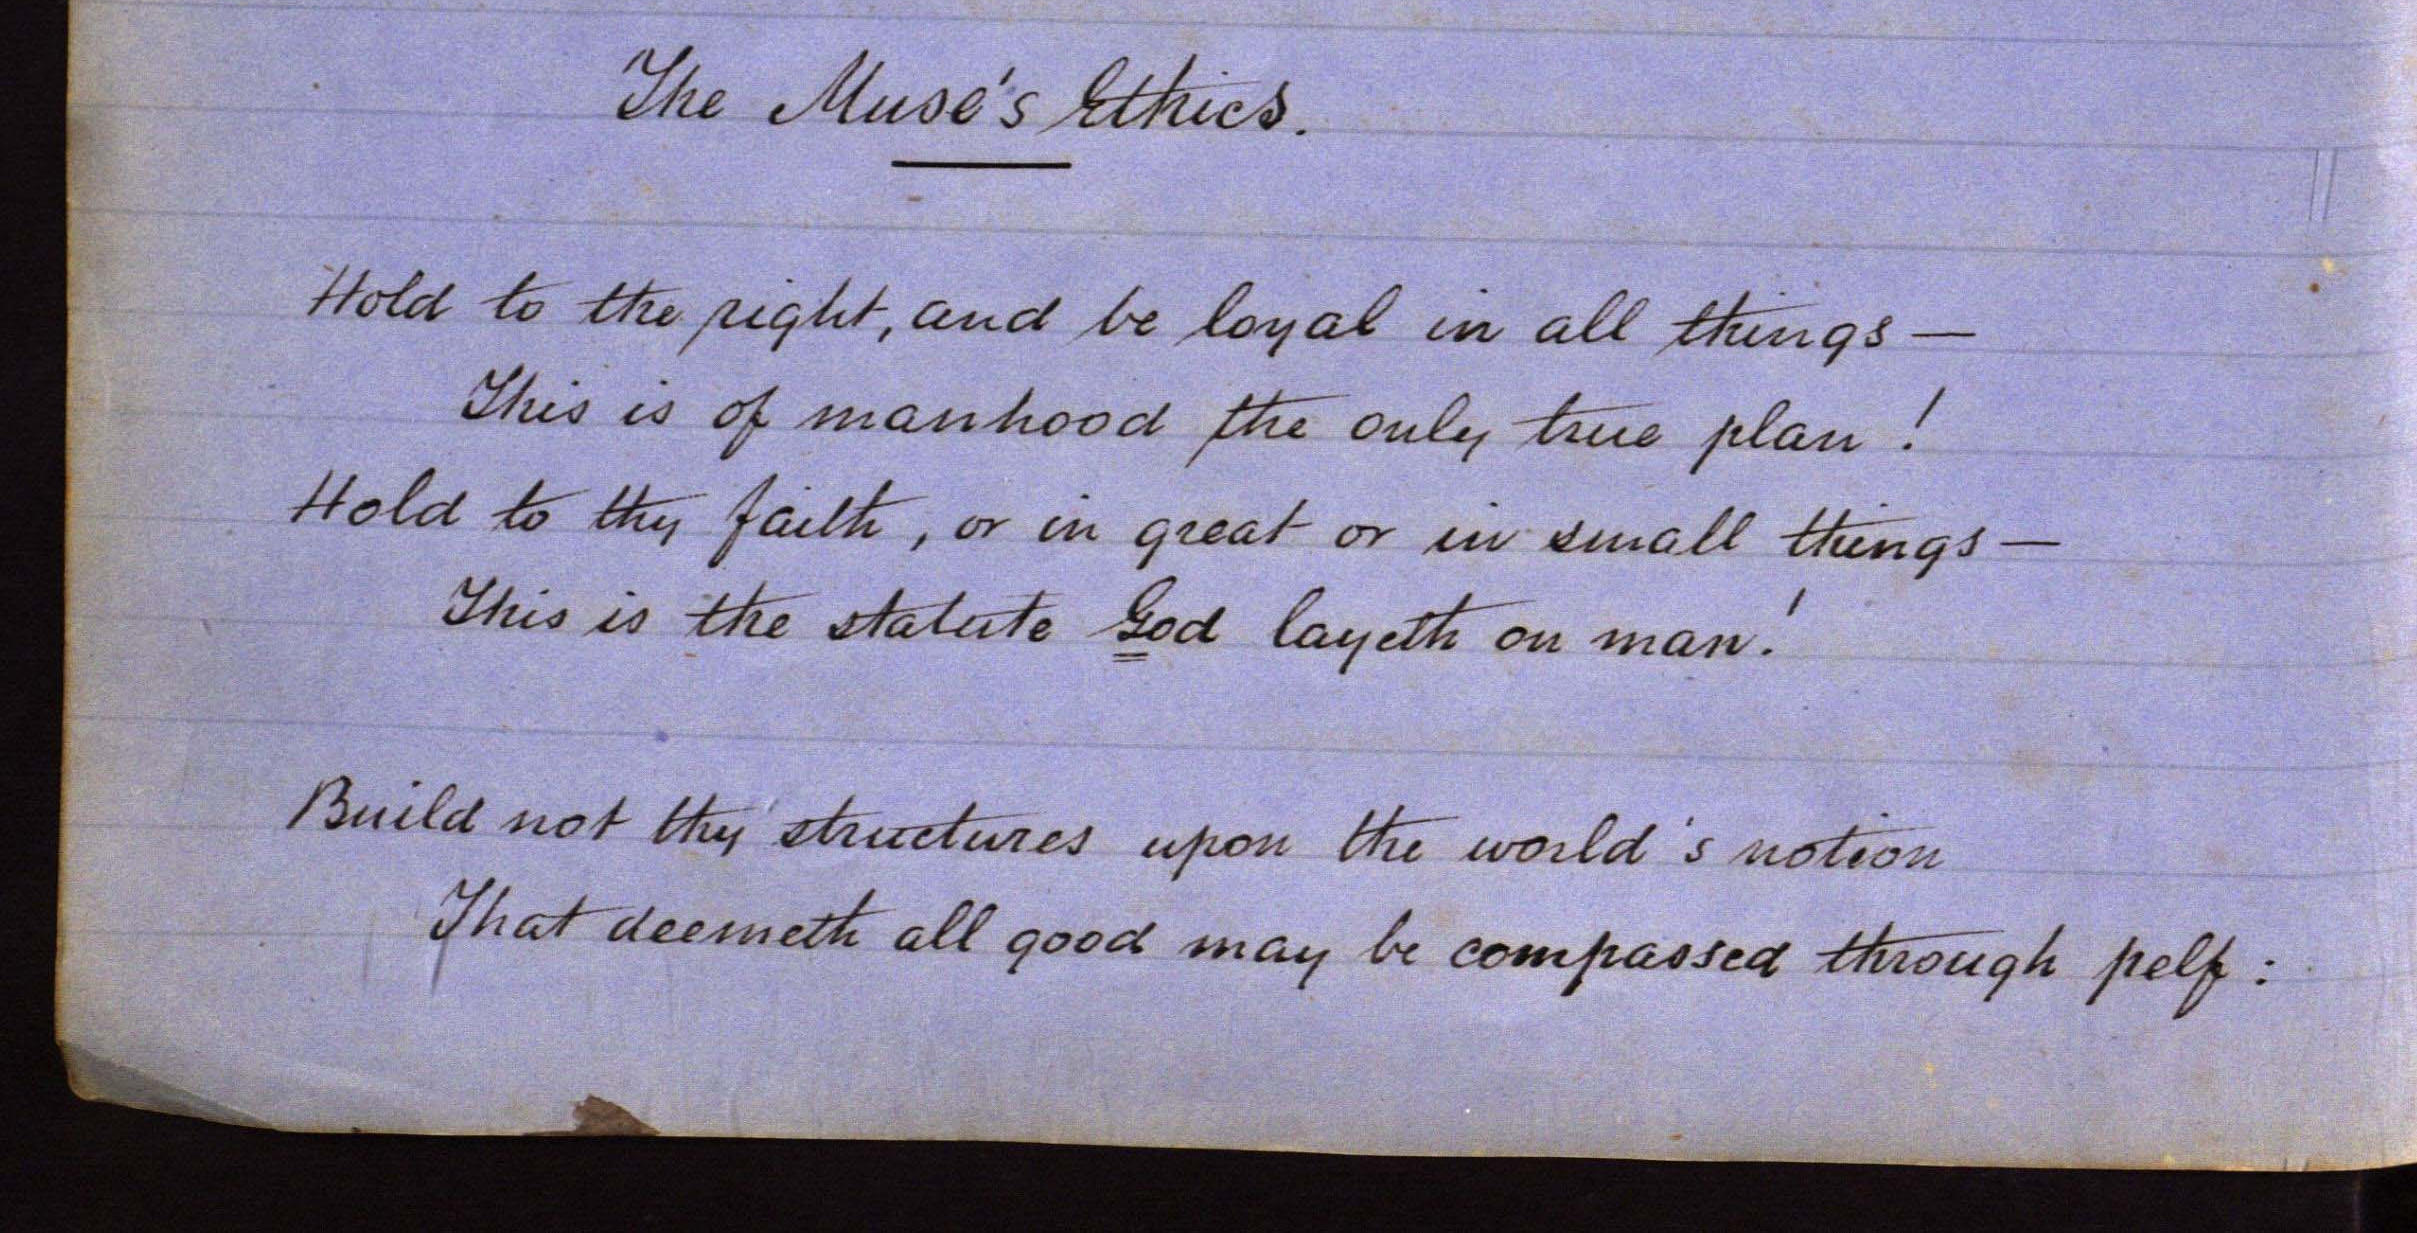 The Muse's Ethics.
Hold to the right, and be loyal in all things —
This is of manhood the only true plan !
Hold to thy faith, or in great or in small things —
This is the statute God layeth on man!
Build not thy structures upon the world's notion
That deemeth all good may be compassed through pelf :